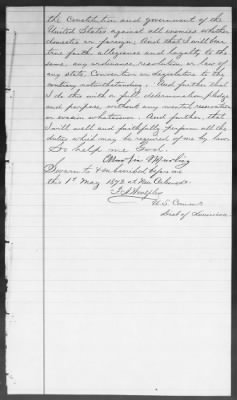 the Constitution and government of the
United States against all enemies whether
domestic or foreign, And that I will bear
true faith allegiance and loyalty to the
same, any ordinance, resolution, or law of
any state, Convention or Legislature to the
contrary notwithstanding. And further that
I do this with a full determination pledge
and purpose, without any mental reservation
or evasion whatsoever. And further, that
I will well and faithfully perform all the
duties which may be required of me by law.
So help me God.
Sworn to & subscribed before me
this 1st May 1873 at New Orleans
U.S. Commr
Dist of Louisiana